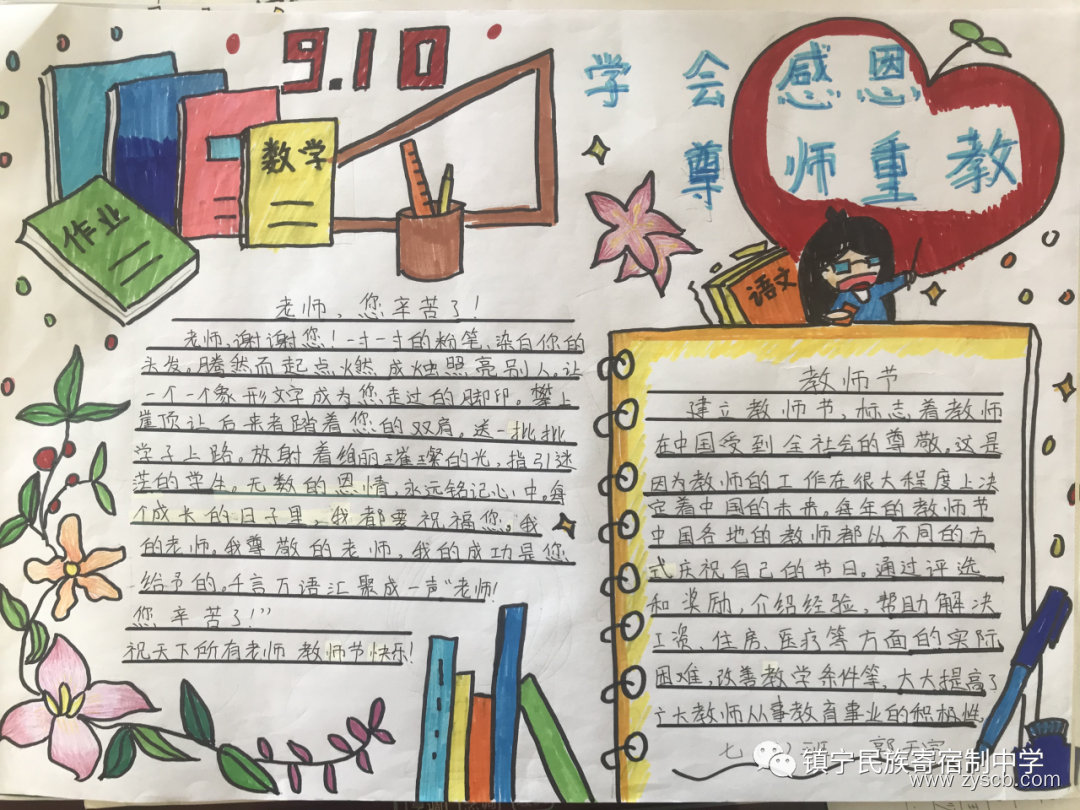 9.10
学会感恩
尊师重教
数学
作业
语文
老师，您辛苦了！
老师，谢谢您！一寸一寸的粉笔，染白你的
头发。腾然而起点火燃成烛照亮别人。让
一个一个象形文字成为您走过的脚印。攀上
崖顶让后来者踏着您的双肩。送一批批
学子上路。放射着绚丽璀璨的光，指引迷
茫的学生。无数的恩情，永远铭记心中。每
个成长的日子里，我都要祝福您。"我
的老师。我尊敬的老师，我的成功是您
给予的。千言万语汇聚成一声"老师！
您辛苦了！"
祝天下所有老师教师节快乐！
教师节
建立教师节，标志着教师
在中国受到全社会的尊敬。这是
因为教师的工作在很大程度上决
定着中国的未来。每年的教师节
中国各地的教师都从不同的方
式庆祝自己的节日。通过评选
和奖励，介绍经验，帮助解决
工资、住房、医疗等方面的实际
困难，改善教学条件等，大大提高了
广大教师从事教育事业的积极性。
七 班 郭
镇宁民族寄宿制中学
www.zyscb.com